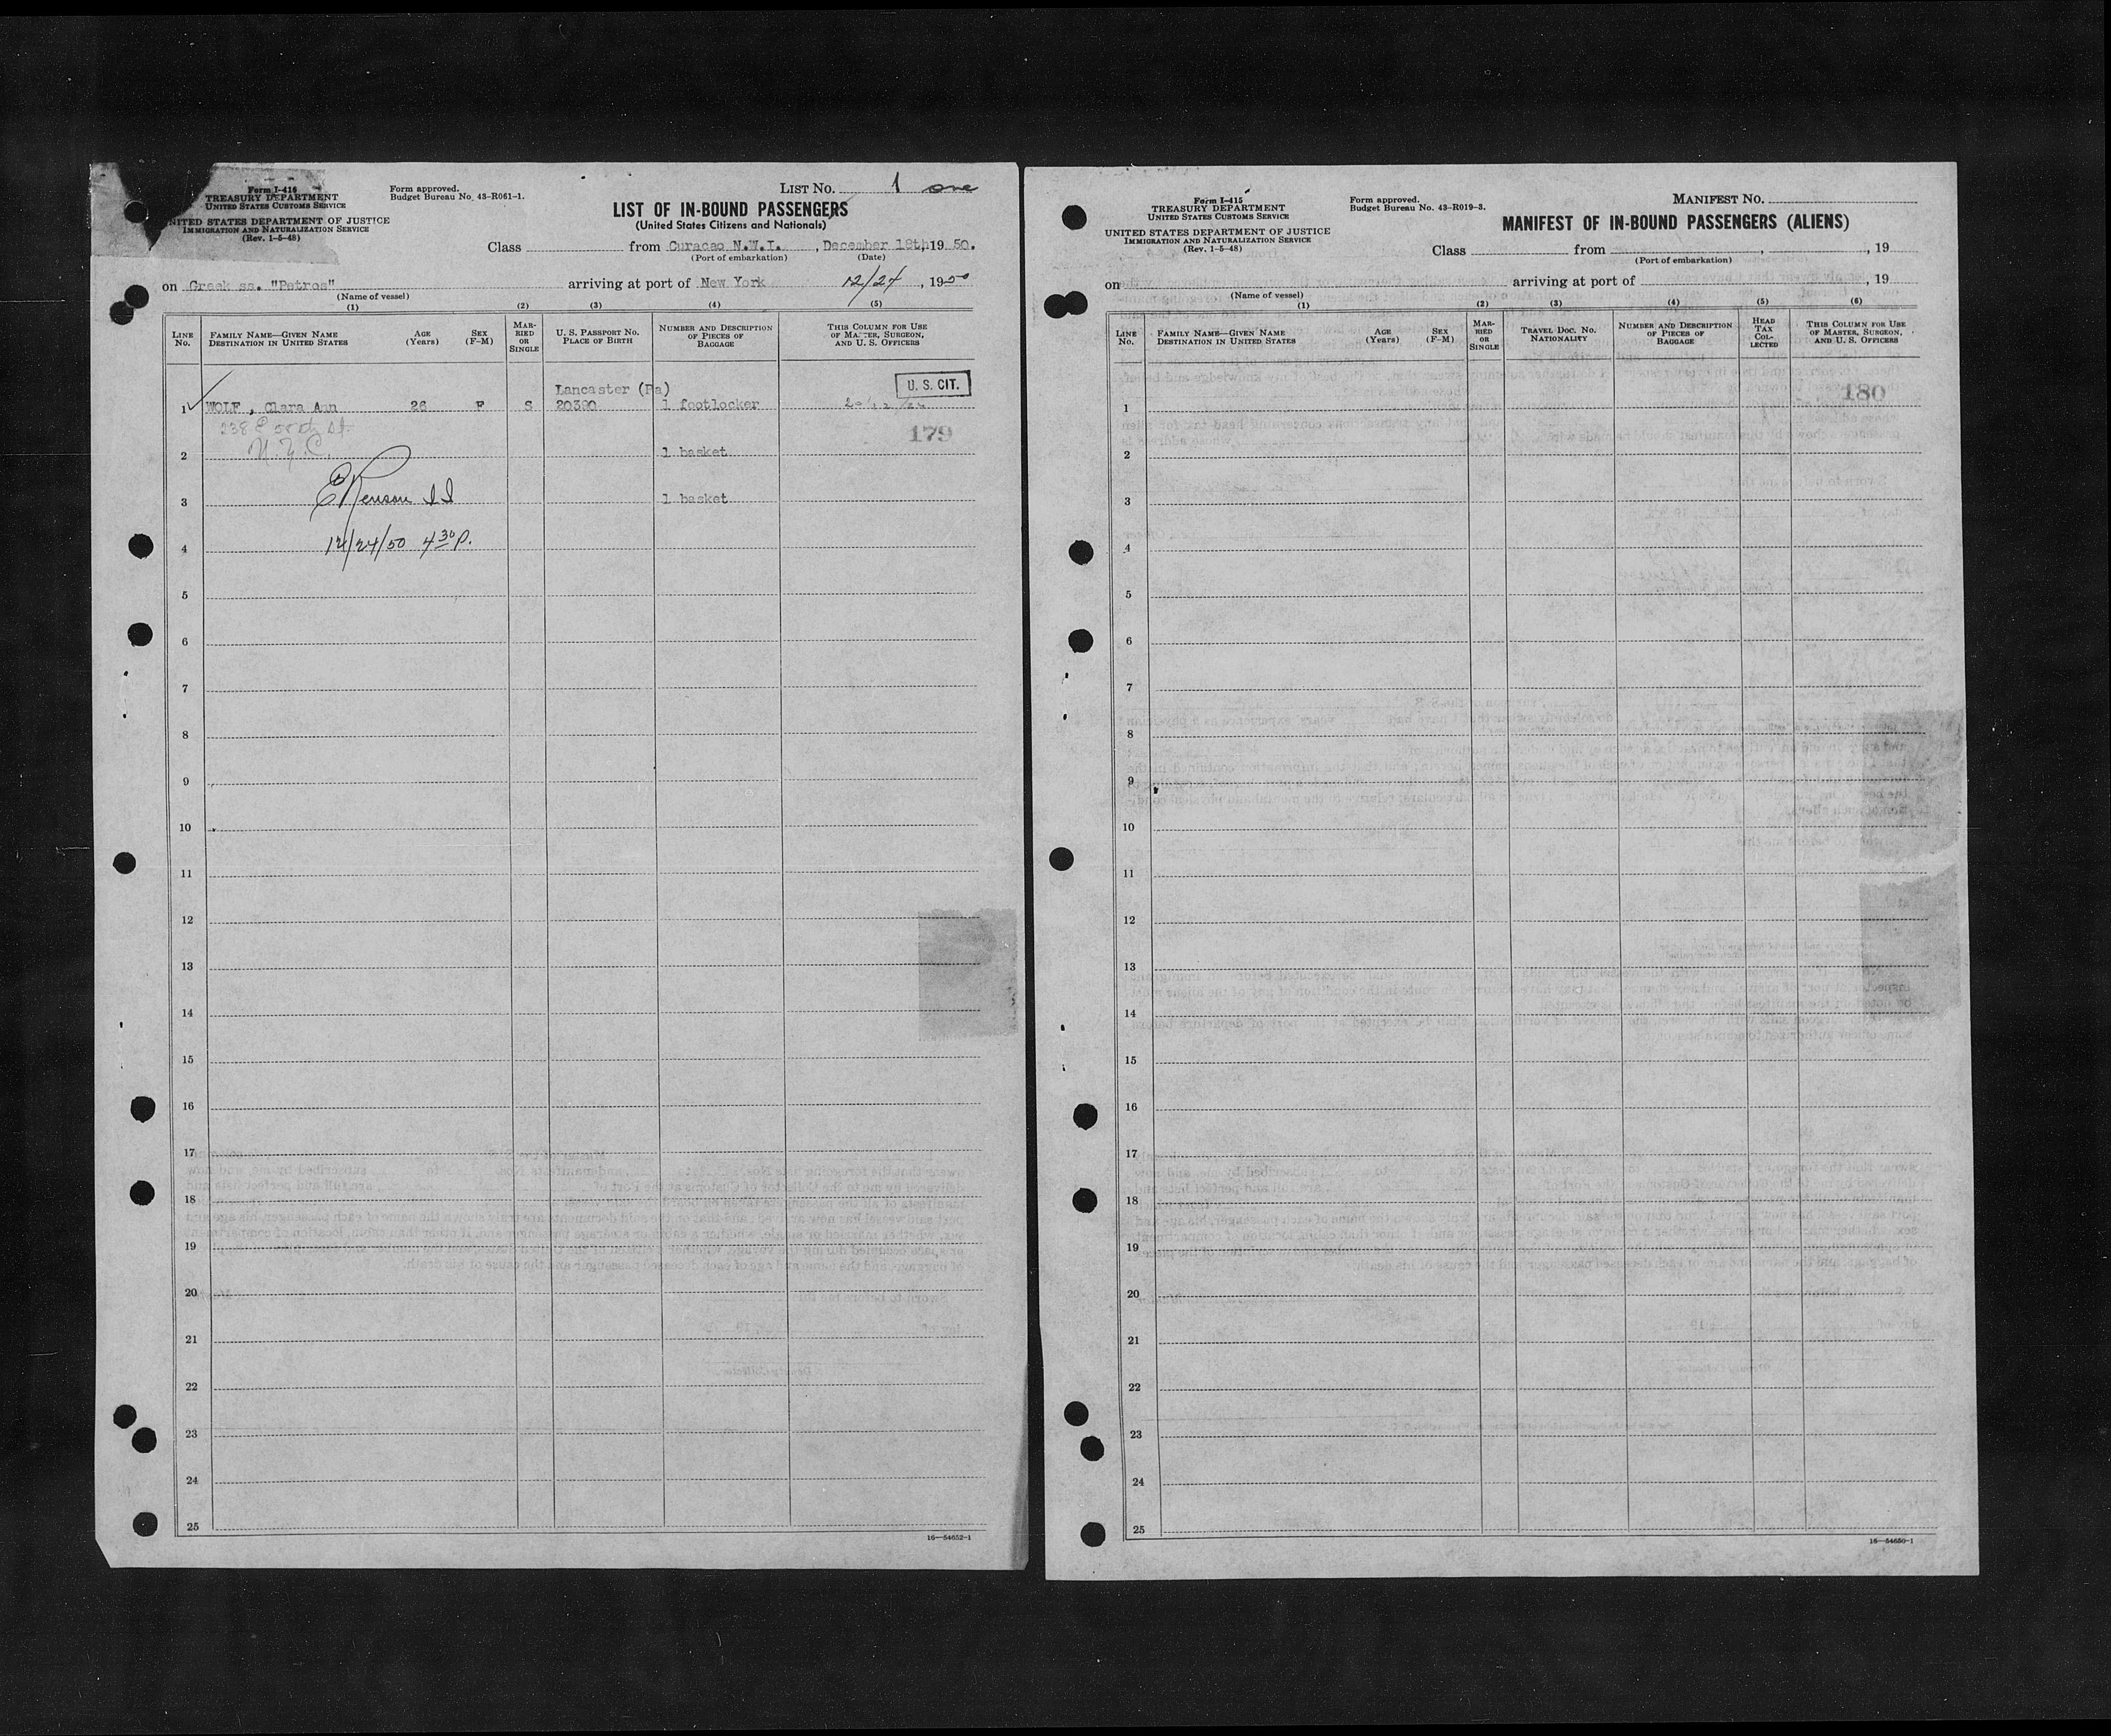 Form I-416
TREASURY DEPARTMENT
UNITED STATES CUSTOMS SERVICE
UNITED STATES DEPARTMENT OF JUSTICE
IMMIGRATION AND NATURALIZATION SERVICE
(Rev. 1-5-48)
Form approved.
Budget Bureau No. 43-R061-1.
LIST NO. 1 one
LIST OF IN-BOUND PASSENGERS
(United States Citizens and Nationals)
Class from Curacao N.W.I. , December 19th, 19 50.
(Port of embarkation) (Date)
on Greek ss. "Petros" arriving at port of New York 12/24 , 1950
(Name of vessel)
(1) (2) (3) (4) (5)
LINE NO. FAMILY NAME—GIVEN NAME DESTINATION IN UNITED STATES AGE (Years) SEX (F-M) MARRIED OR SINGLE U. S. PASSPORT NO. PLACE OF BIRTH NUMBER AND DESCRIPTION OF PIECES OF BAGGAGE THIS COLUMN FOR USE OF MASTER, SURGEON, AND U. S. OFFICERS
Lancaster (Pa) U. S. CIT.
1 WOLF, Clara Ann 26 F S 20390 1 footlocker
238 E 55th St. 179
N.Y.C.
2 1 basket
3 1 basket
12/24/50 4 30 P.
4
5
6
7
8
9
10
11
12
13
14
15
16
17
18
19
20
21
22
23
24
25
16—54652-1
Form I-415
TREASURY DEPARTMENT
UNITED STATES CUSTOMS SERVICE
UNITED STATES DEPARTMENT OF JUSTICE
IMMIGRATION AND NATURALIZATION SERVICE
(Rev. 1-5-48)
Form approved.
Budget Bureau No. 43-R019-3.
MANIFEST NO.
MANIFEST OF IN-BOUND PASSENGERS (ALIENS)
Class from , , 19
(Port of embarkation)
on arriving at port of , 19
(Name of vessel)
(1) (2) (3) (4) (5) (6)
LINE NO. FAMILY NAME—GIVEN NAME DESTINATION IN UNITED STATES AGE (Years) SEX (F-M) MARRIED OR SINGLE TRAVEL DOC. NO. NATIONALITY NUMBER AND DESCRIPTION OF PIECES OF BAGGAGE HEAD TAX COLLECTED THIS COLUMN FOR USE OF MASTER, SURGEON, AND U. S. OFFICERS
180
1
2
3
4
5
6
7
8
9
10
11
12
13
14
15
16
17
18
19
20
21
22
23
24
25
16—54650-1